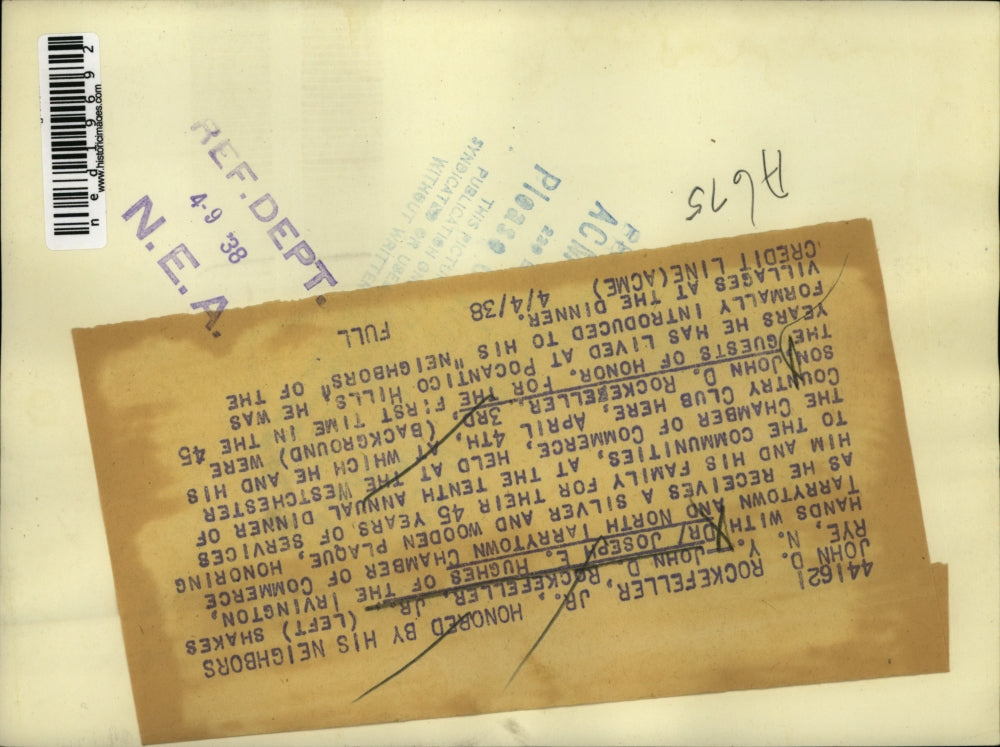 ned19692
www.historicimages.com
REF. DEPT.
4-9 '38
N.E.A.
A675
Please
THIS
PUBLICATION
SYNDICATED OR USED
WITHOUT WRITTEN
441621
JOHN D. ROCKEFELLER, JR., HONORED BY HIS NEIGHBORS
RYE, N. Y. JOHN D. ROCKEFELLER, JR. (LEFT) SHAKES
HANDS WITH DR. JOSEPH E. HUGHES OF THE IRVINGTON,
TARRYTOWN AND NORTH TARRYTOWN CHAMBER OF COMMERCE
AS HE RECEIVES A SILVER AND WOODEN PLAQUE, HONORING
HIM AND HIS FAMILY FOR THEIR 45 YEARS OF SERVICES
TO THE COMMUNITIES, AT THE TENTH ANNUAL DINNER OF
THE CHAMBER OF COMMERCE, HELD AT THE WESTCHESTER
COUNTRY CLUB HERE, APRIL 4TH, AT WHICH HE AND HIS
SON JOHN D. ROCKEFELLER, 3RD, (BACKGROUND) WERE
THE GUESTS OF HONOR. FOR THE FIRST TIME IN THE 45
YEARS HE HAS LIVED AT POCANTICO HILLS, HE WAS
FORMALLY INTRODUCED TO HIS "NEIGHBORS" OF THE
VILLAGES AT THE DINNER.
CREDIT LINE(ACME) 4/4/38 FULL